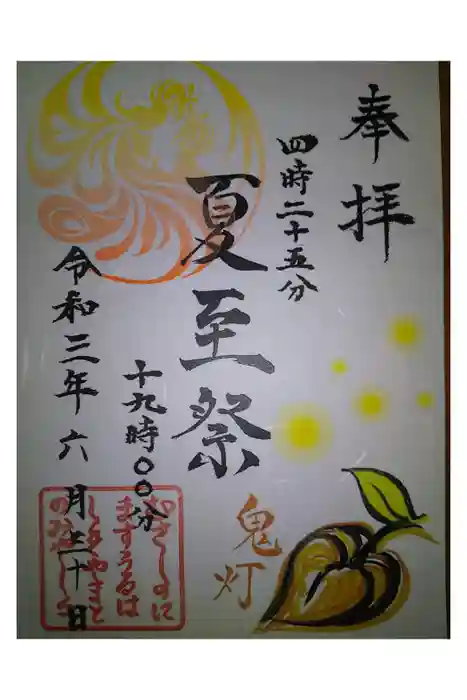 奉拝
四時二十五分
夏至祭
十九時〇〇分
令和三年六月二十日
鬼灯